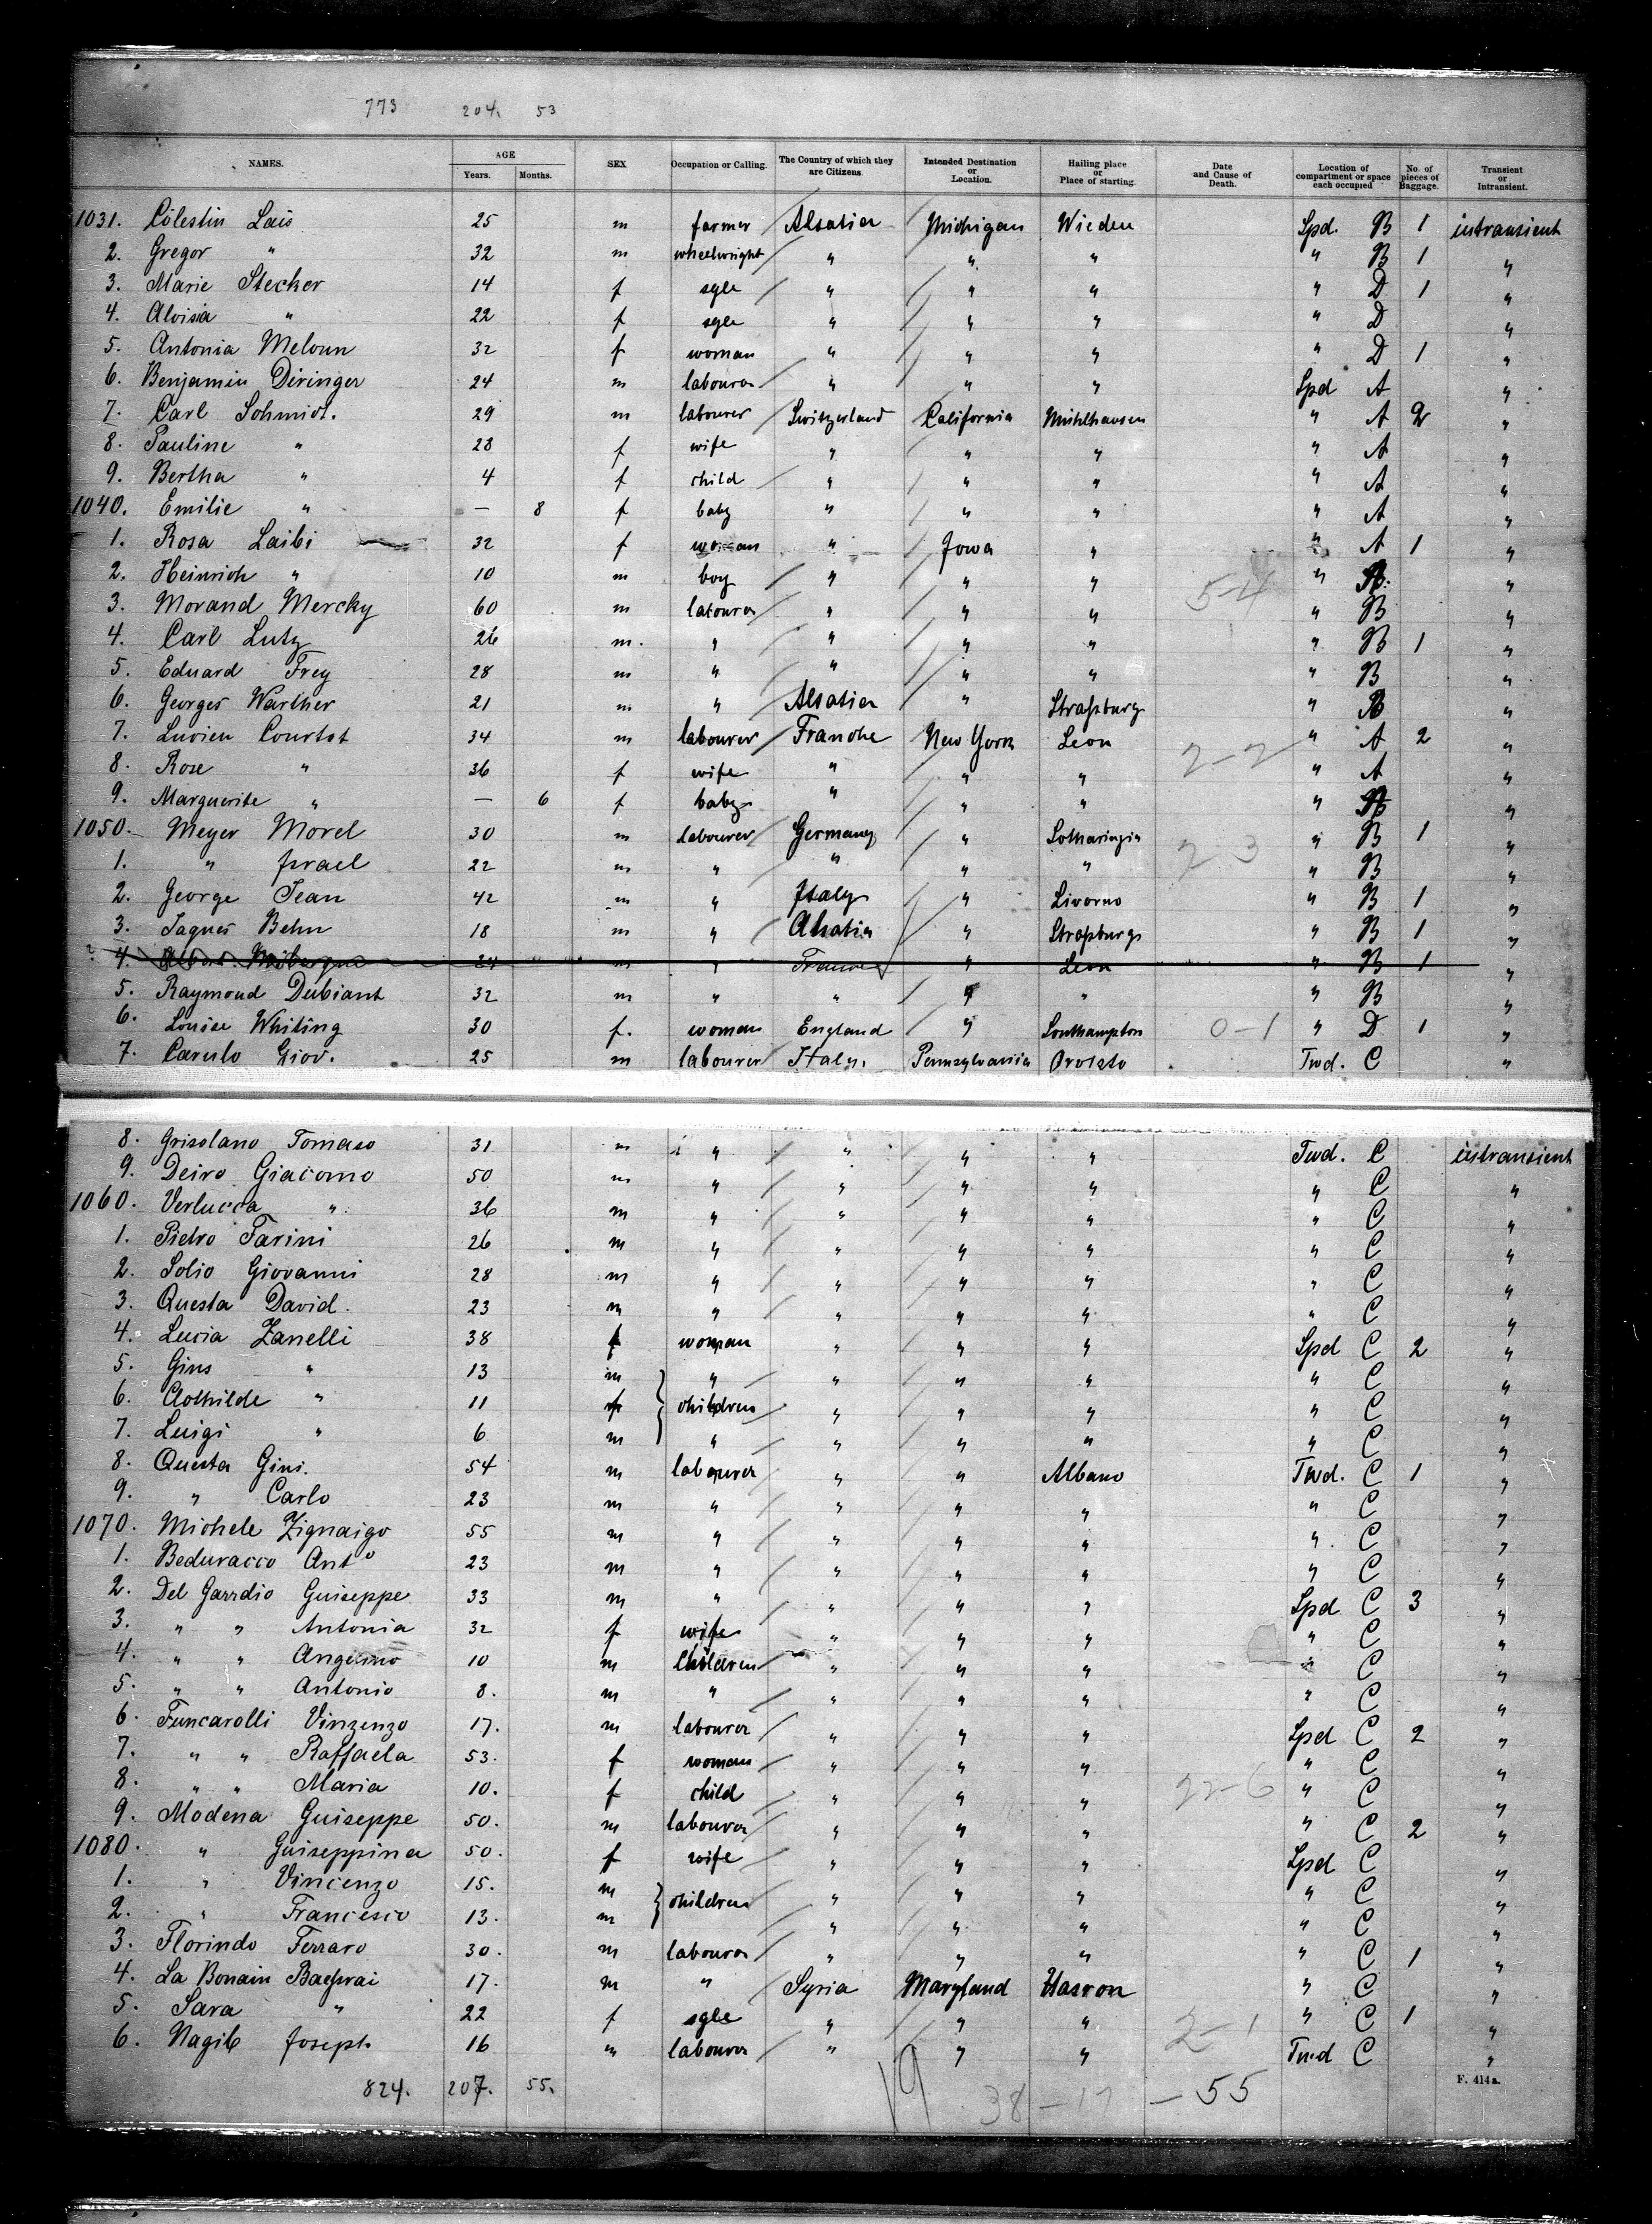 773 204. 53
NAMES. AGE Years. Months. SEX Occupation or Calling. The Country of which they are Citizens. Intended Destination or Location. Hailing place or Place of starting. Date and Cause of Death. Location of compartment or space each occupied No. of pieces of Baggage. Transient or Intransient.
1031. Cölestin Lais 25 m farmer Alsatia Michigan Wieden Spd. B 1 intransient
2. Gregor " 32 m wheelwright " " " " B 1 "
3. Marie Stecher 14 f sgle " " " " D 1 "
4. Aloisia " 22 f sgle " " " " D "
5. Antonia Meloun 32 f woman " " " " D 1 "
6. Benjamin Diringer 24 m labourer " " " Spd A "
7. Carl Schmidt. 29 m labourer Switzerland California Mühlhausen " A 2 "
8. Pauline " 28 f wife " " " " A "
9. Bertha " 4 f child " " " " A "
1040. Emilie " — 8 f baby " " " " A "
1. Rosa Laibi 32 f woman " Iowa " " A 1 "
2. Heinrich " 10 m boy " " " 5-4 " "
3. Morand Mercky 60 m labourer " " " " B "
4. Carl Lutz 26 m. " " " " " B 1 "
5. Eduard Frey 28 m " " " " " B "
6. Georges Warther 21 m " Alsatia " Straßburg " B "
7. Lucien Courtot 34 m labourer Franche New York Leon 2-2 " A 2 "
8. Rose " 36 f wife " " " " A "
9. Marguerite " — 6 f baby " " " " "
1050. Meyer Morel 30 m labourer Germany " Lotharingia 2-3 " B 1 "
1. " Israel 22 m " " " " " B "
2. George Jean 42 m " Italy " Livorno " B 1 "
3. Jaques Behn 18 m " Alsatia " Straßburg " B 1 "
4. 24 m " France " Leon " B 1 "
5. Raymond Dubiant 32 m " " " " " B "
6. Louise Whiting 30 f. woman England " Southampton 0-1 " D 1 "
7. Carulo Giov. 25 m labourer Italy. Pennsylvania Twd. C "
8. Grisolano Tomaso 31 m " " " " Twd. C intransient
9. Deiro Giacomo 50 m " " " " " C "
1060. Verlucca " 36 m " " " " " C "
1. Pietro Farini 26 m " " " " " C "
2. Solio Giovanni 28 m " " " " " C "
3. Questa David. 23 m " " " " " C "
4. Lucia Zanelli 38 f woman " " " Spd C 2 "
5. Gius " 13 m " " " " " C "
6. Clothilde " 11 f children " " " " C "
7. Luigi " 6 m " " " " " C "
8. Questa Gius. 54 m labourer " " Albano Twd. C 1 "
9. " Carlo 23 m " " " " " C "
1070. Michele Zignaigo 55 m " " " " " C "
1. Beduracco Anto 23 m " " " " " C "
2. Del Garrdio Guiseppe 33 m " " " " Spd C 3 "
3. " " Antonia 32 f wife " " " " C "
4. " " 10 m Children " " " " C "
5. " " Antonio 8. m " " " " " C "
6. Funcarolli Vinzenzo 17. m labourer " " " Spd C 2 "
7. " " Raffaela 53. f woman " " " " C "
8. " " Maria 10. f child " " " 22-6 " C "
9. Modena Guiseppe 50. m labourer " " " " C 2 "
1080. " Guiseppina 50. f wife " " " Spd C "
1. " Vincenzo 15. m children " " " " C "
2. " Francesco 13. m " " " " C "
3. Florindo Ferraro 30. m labourer " " " " C 1 "
4. La Bonain 17. m " Syria Maryland Hasron " C "
5. Sara " 22 f sgle " " " 2-1 " C 1 "
6. Nagib Joseph 16 m labourer " " " Twd C "
F. 414a.
824. 207. 55. 19 38 - 17 - 55